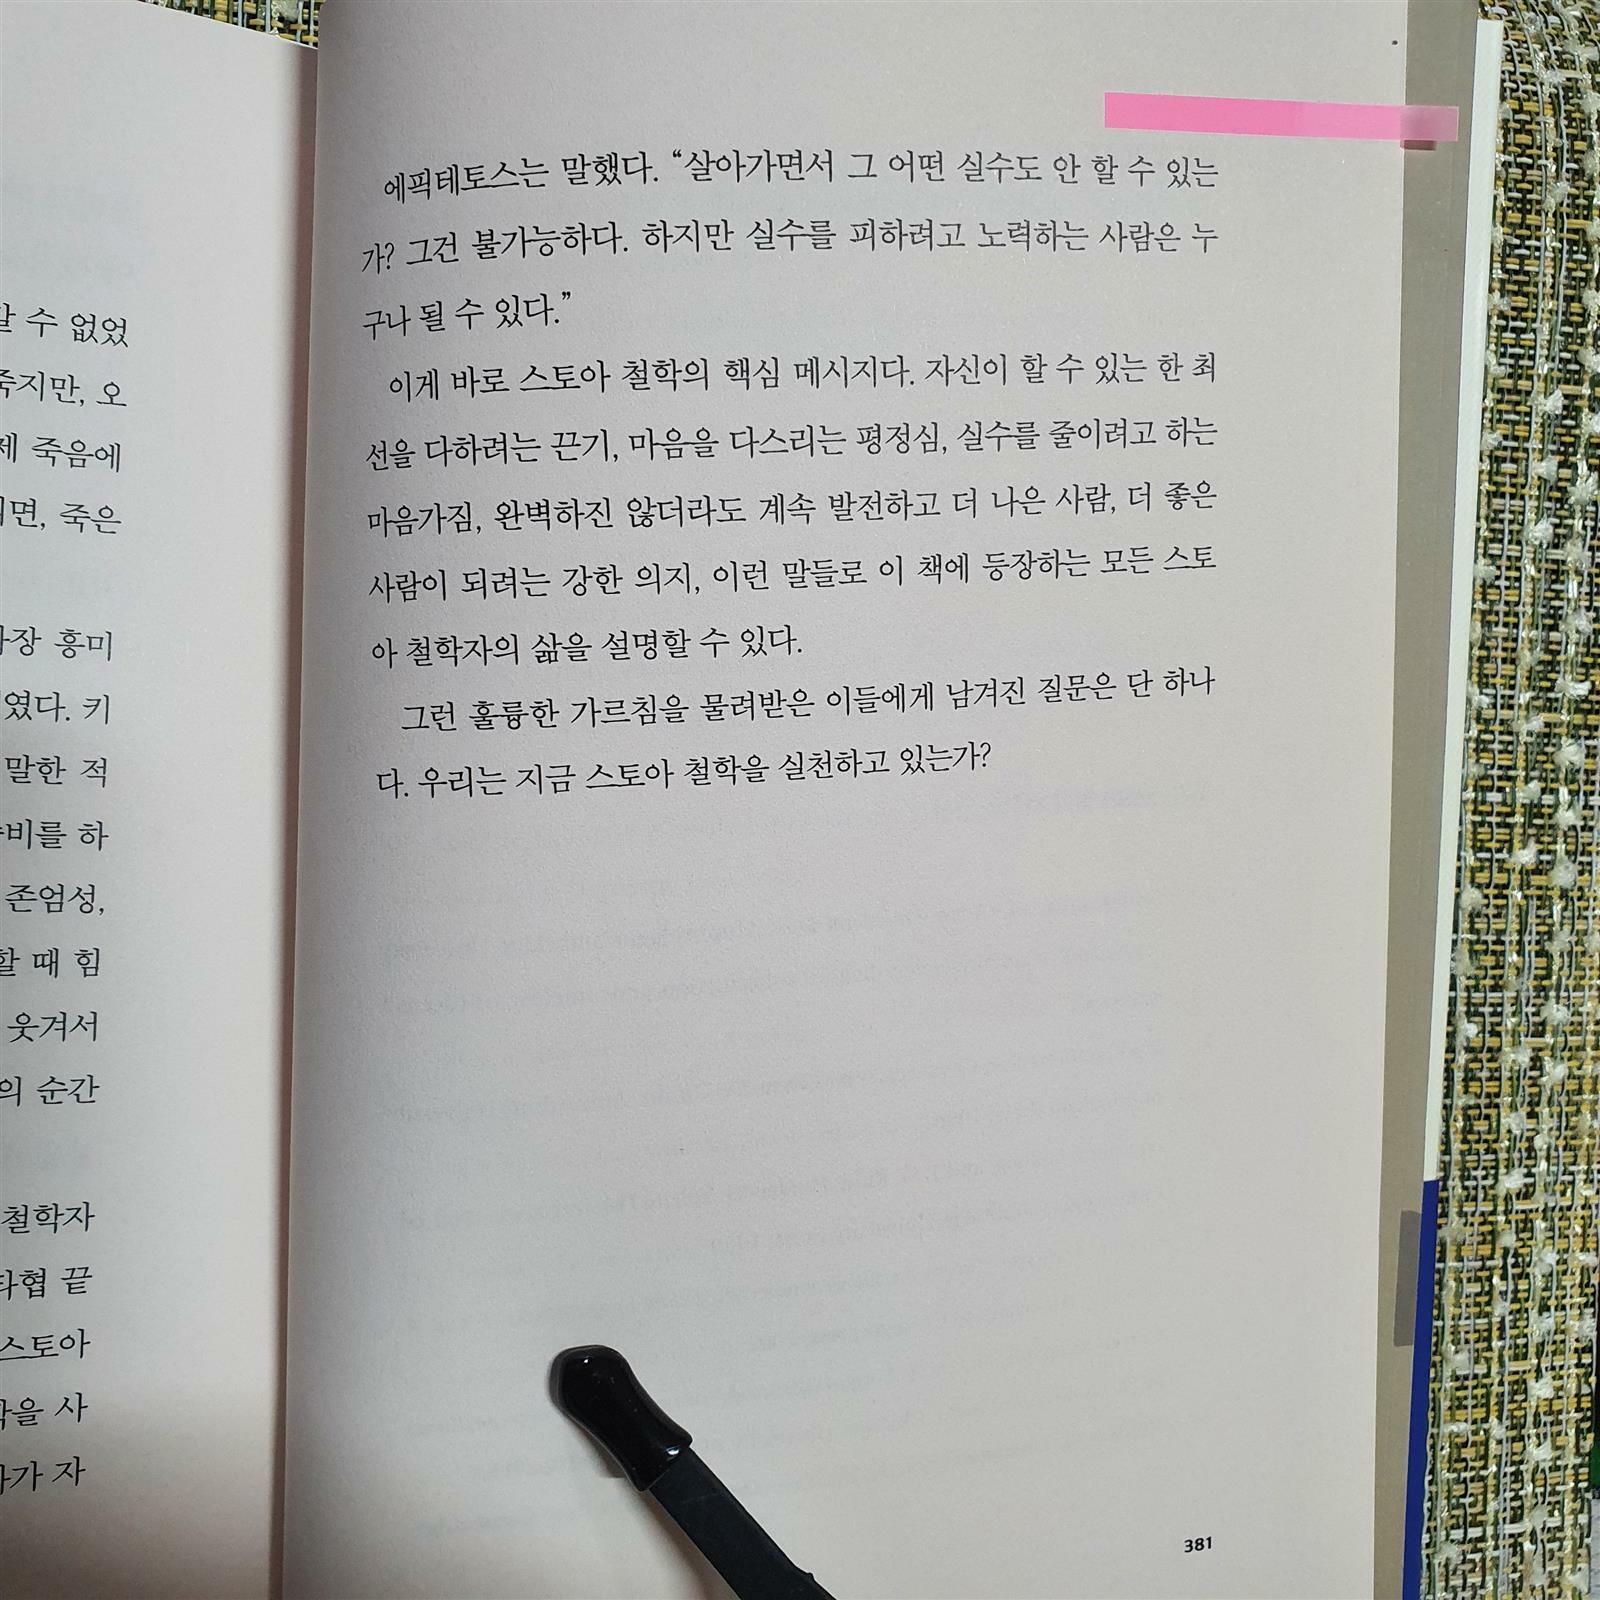 할 수 없었
죽지만, 오
제 죽음에
면, 죽은
장 흥미
였다. 키
말한 적
비를 하
존엄성,
할 때 힘
웃겨서
의 순간
철학자
타협 끝
스토아
학을 사
가 자
에픽테토스는 말했다. “살아가면서 그 어떤 실수도 안 할 수 있는
가? 그건 불가능하다. 하지만 실수를 피하려고 노력하는 사람은 누
구나 될 수 있다.”
이게 바로 스토아 철학의 핵심 메시지다. 자신이 할 수 있는 한 최
선을 다하려는 끈기, 마음을 다스리는 평정심, 실수를 줄이려고 하는
마음가짐, 완벽하진 않더라도 계속 발전하고 더 나은 사람, 더 좋은
사람이 되려는 강한 의지, 이런 말들로 이 책에 등장하는 모든 스토
아 철학자의 삶을 설명할 수 있다.
그런 훌륭한 가르침을 물려받은 이들에게 남겨진 질문은 단 하나
다. 우리는 지금 스토아 철학을 실천하고 있는가?
381